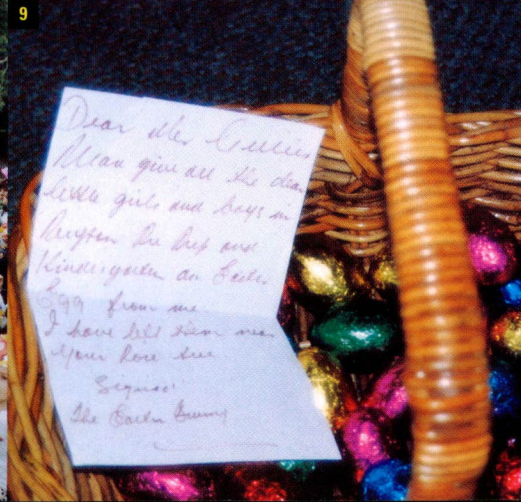 9
Dear Mrs Gillies
Please give all the dear
little girls and boys in
Pre Prep and
Kindergarten an Easter
Egg from me
I have left them near
your Rose tree
Signed
The Easter Bunny